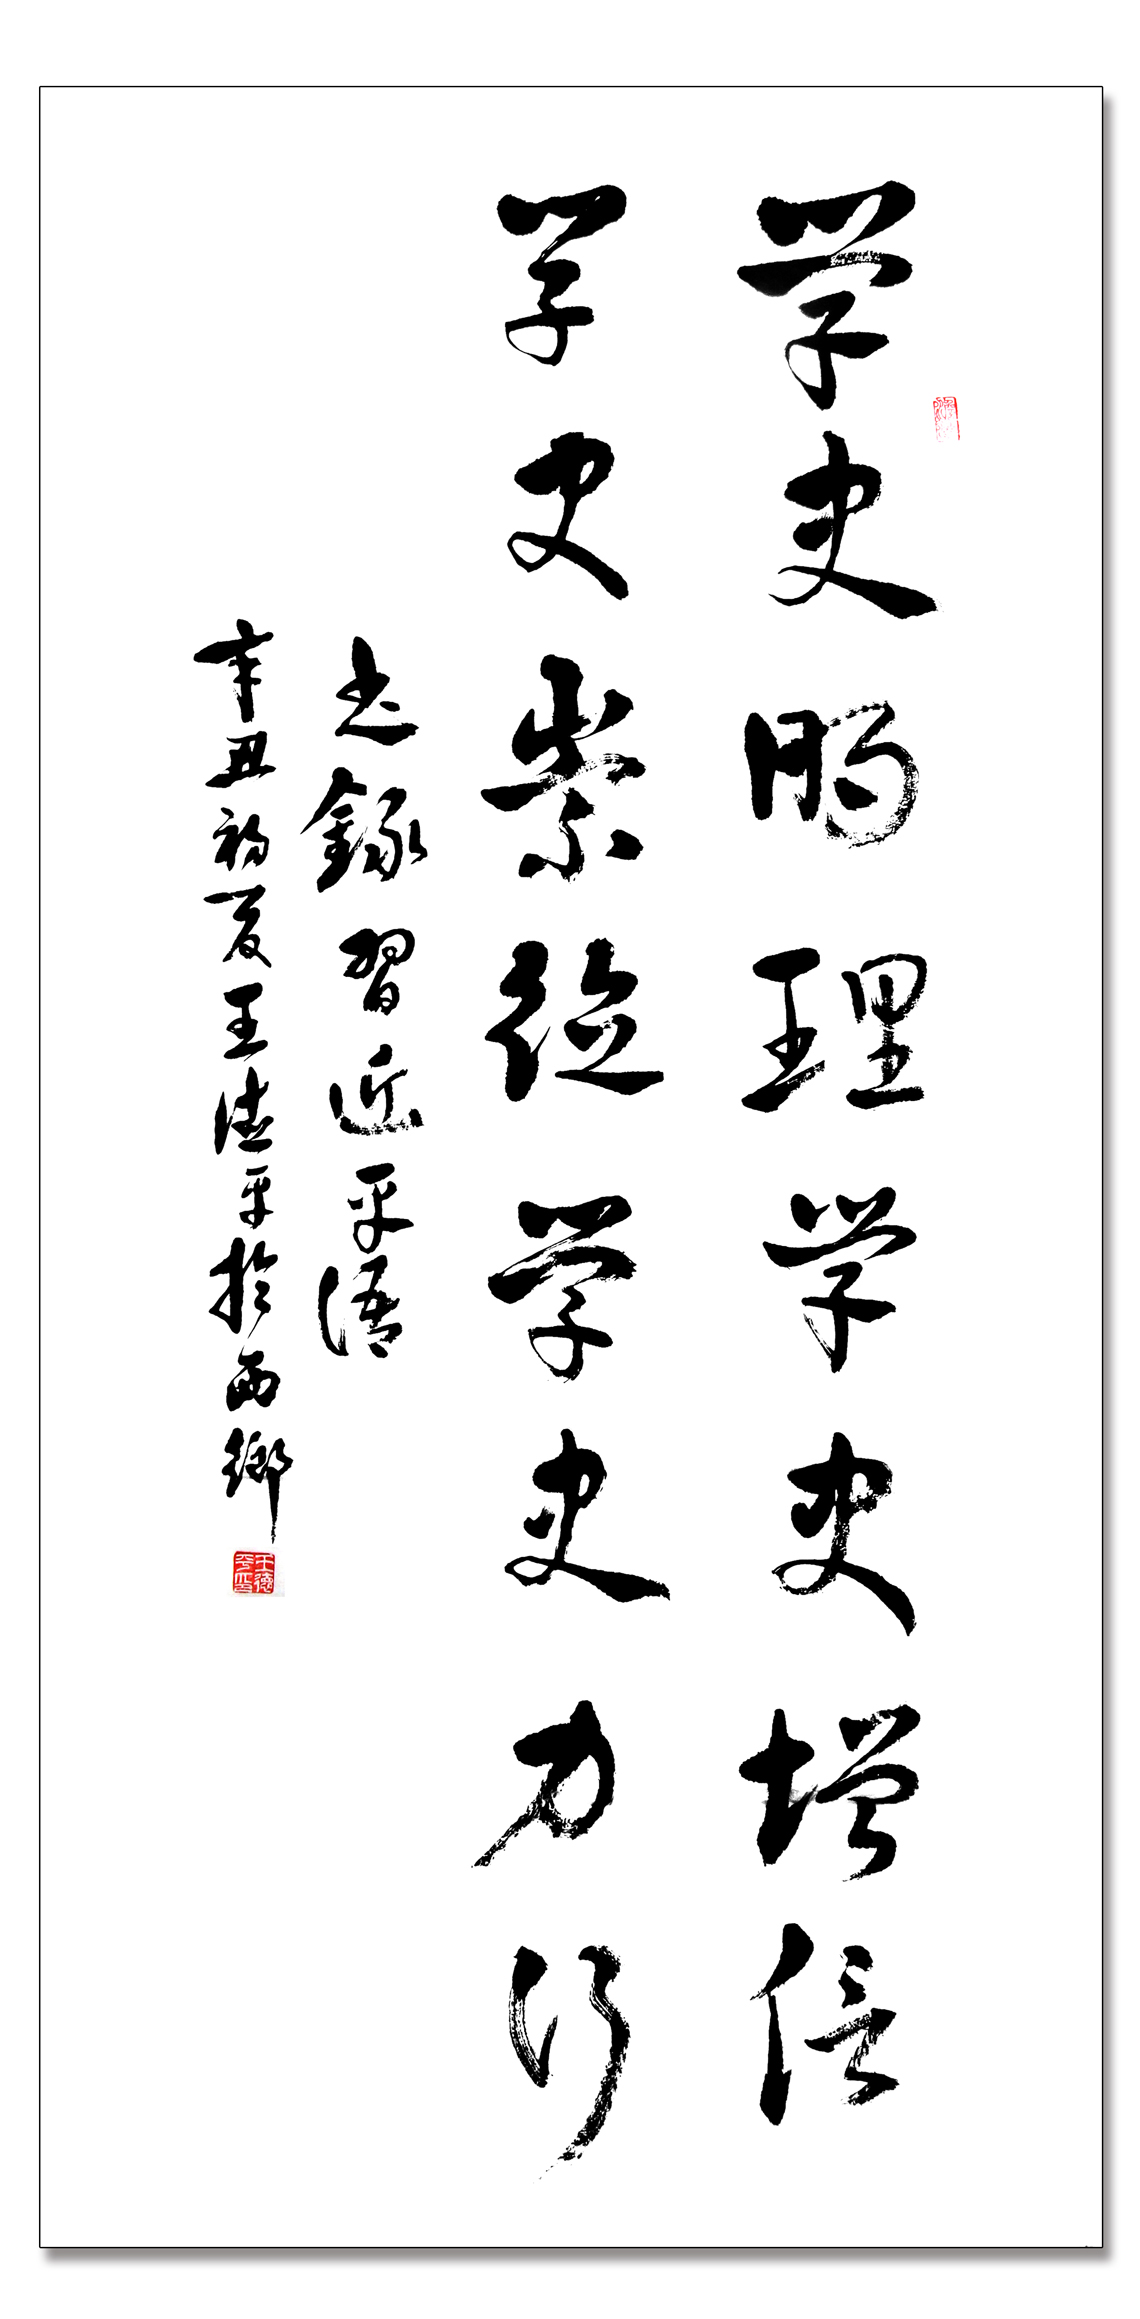 学史明理学史增信
学史崇德学史力行
书錄習近平语
辛丑初夏王德平於西鄉
王德平印